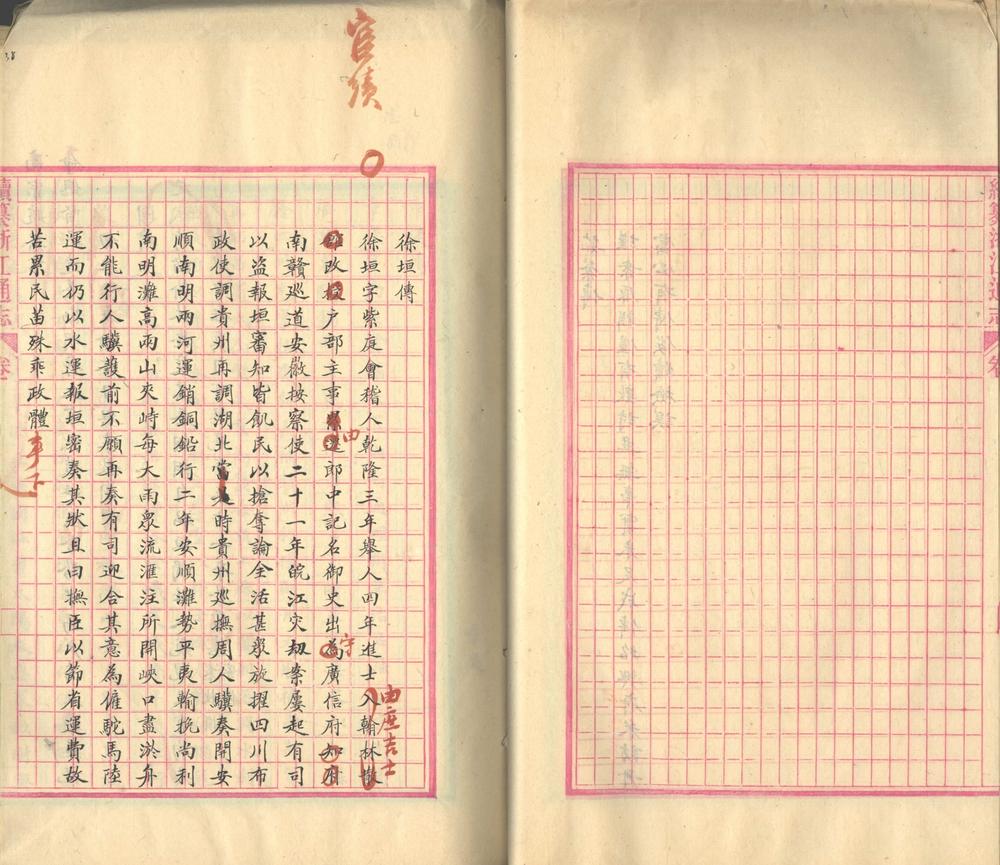 宦績
徐垣傳
徐垣字紫庭會稽人乾隆三年舉人四年進士入翰林散
由庶吉士
政授戶部主事遷郎中記名御史出為廣信府知府
由
守
南贛巡道安徽按察使二十一年皖江灾刼案屢起有司
以盗報垣審知皆飢民以搶奪論全活甚衆旋擢四川布
政使調貴州再調湖北當是時貴州巡撫周人驥奏開安
順南明兩河運銷銅鉛行二年安順灘勢平夷輸挽尚利
南明灘高兩山夾峙每大雨衆流滙注所開峽口盡淤舟
不能行人驥護前不願再奏有司迎合其意為僱駝馬陸
運而仍以水運報垣密奏其狀且曰撫臣以節省運費故
苦累民苗殊乖政體
事下
續纂浙江通志
卷
續纂浙江通志
卷